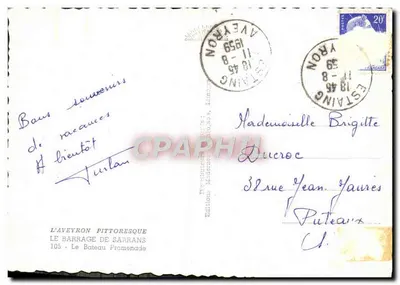 Bons souvenirs
de vacances
A bientôt
L'AVEYRON PITTORESQUE
LE BARRAGE DE SARRANS
105 - Le Bateau Promenade
ESTAING
18 45
11 - 8
1959
AVEYRON
ESTAING
18 45
11 - 8
59
AVEYRON
20F
CPAPHIL
Mademoiselle Brigitte
Ducroc
38 rue Jean Jaurès
Puteaux